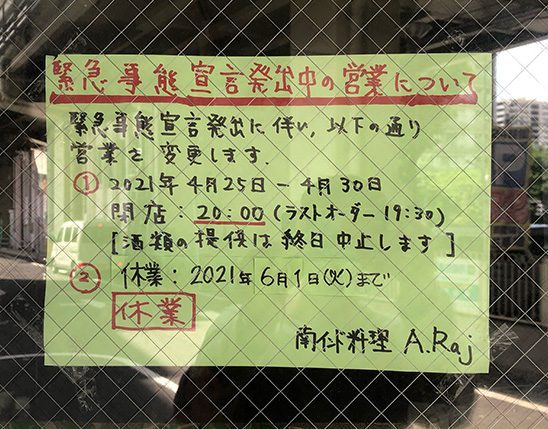 緊急事態宣言発出中の営業について
緊急事態宣言発出に伴い,以下の通り
営業を変更します.
① 2021年4月25日-4月30日
閉店:20:00(ラストオーダー19:30)
[酒類の提供は終日中止します]
② 休業:2021年6月1日(火)まで
休業
南インド料理 A.Raj